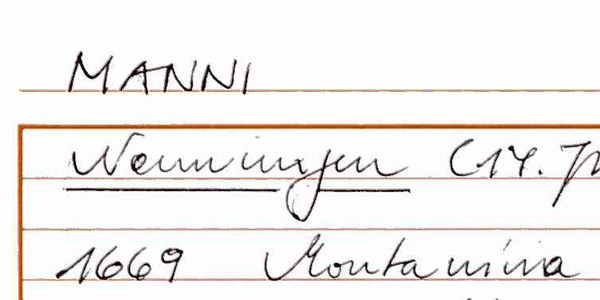 MANNI
Nenningen (17.
1669 Montanina